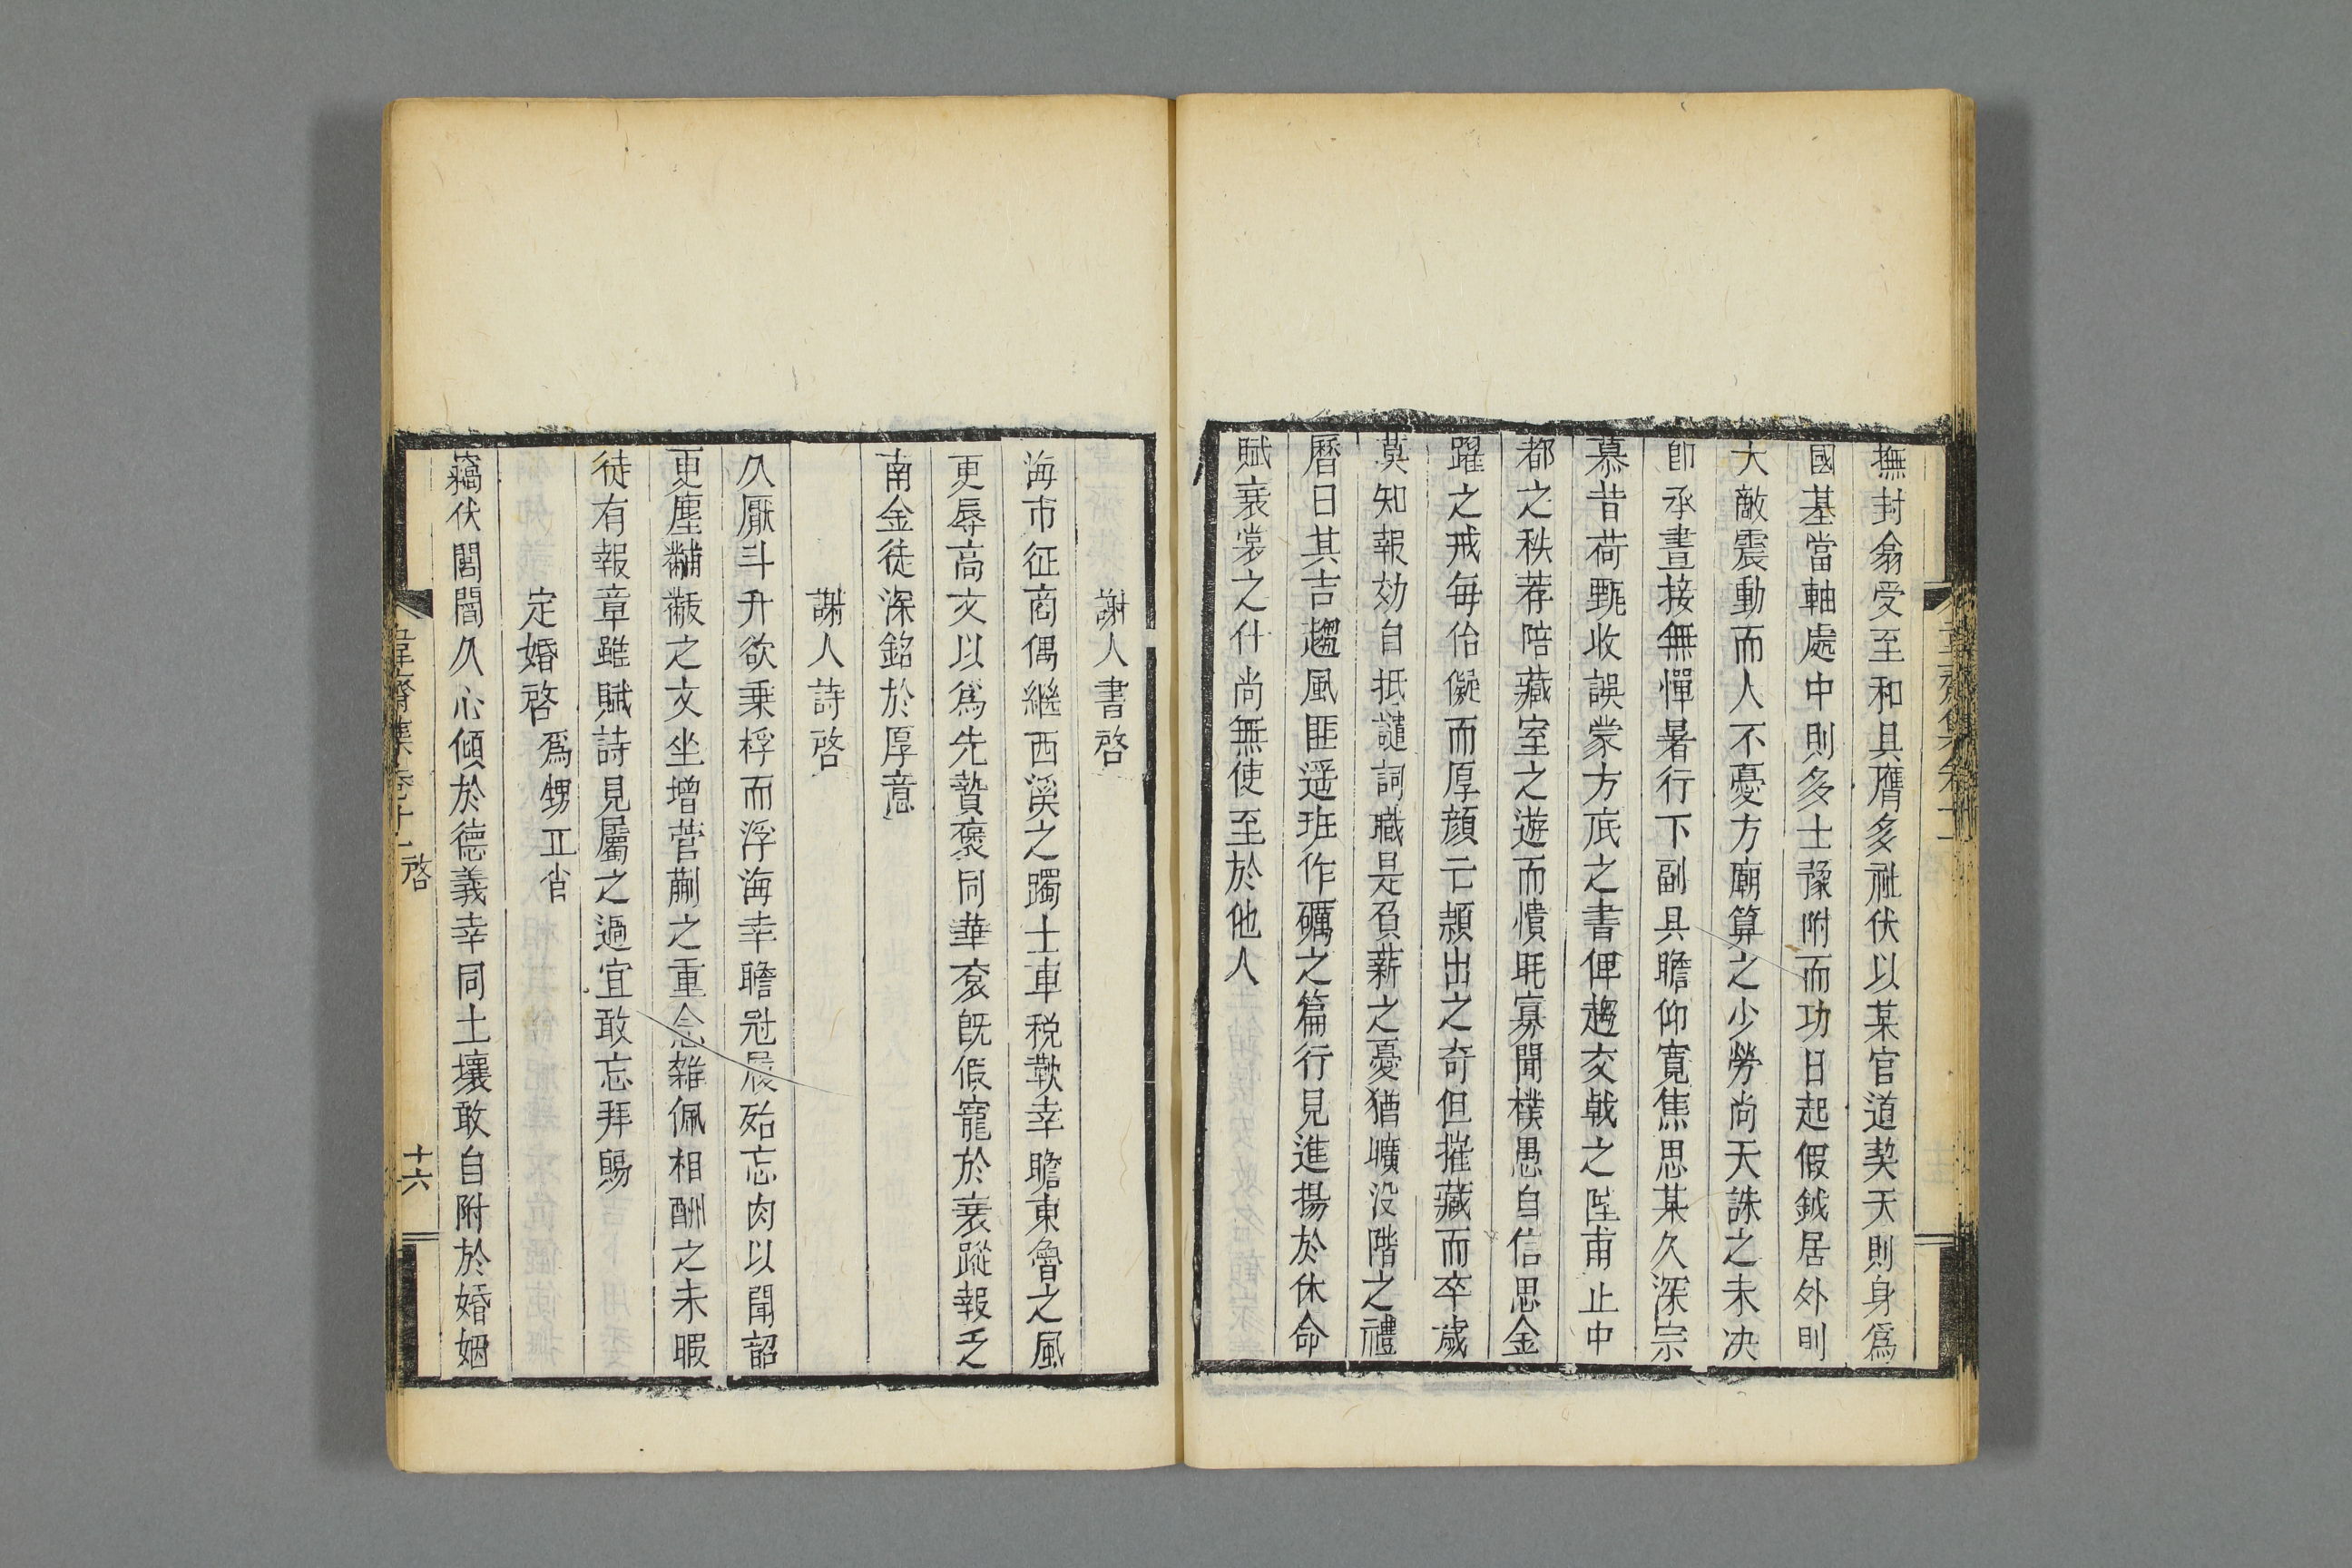 撫封翕受至和具膺多祉伏以某官道契天則身爲
國基當軸處中則多士豫附而功日起假鉞居外則
大敵震動而人不憂方廟算之少勞尚天誅之未决
卽承晝接無憚暑行下副具瞻仰寬焦思某久深宗
慕昔荷甄收誤蒙方底之書俾趨交戟之陛甫止中
都之秩荐陪藏室之遊而憒眊寡聞樸愚自信思金
躍之戒每佁儗而厚顔亡頴出之奇但摧藏而卒歲
莫知報効自抵譴訶職是負薪之憂猶曠没階之禮
曆日其吉趨風匪遥班作礪之篇行見進揚於休命
賦衮裳之什尚無使至於他人
謝人書啓
海市征商偶繼西溪之躅士車税歎幸瞻東魯之風
更辱高文以爲先贄褒同華衮既假寵於衰蹤報乏
南金徒深銘於厚意
謝人詩啓
久厭斗升欲乗桴而浮海幸瞻冠屨殆忘肉以聞韶
更塵黼黻之文坐增菅蒯之重念雜佩相酬之未暇
徒有報章雖賦詩見屬之過宜敢忘拜賜
定婚啓爲甥丘肖
竊伏閭閻久心傾於德義幸同土壤敢自附於婚姻
韋齋集卷十一 啓 十六